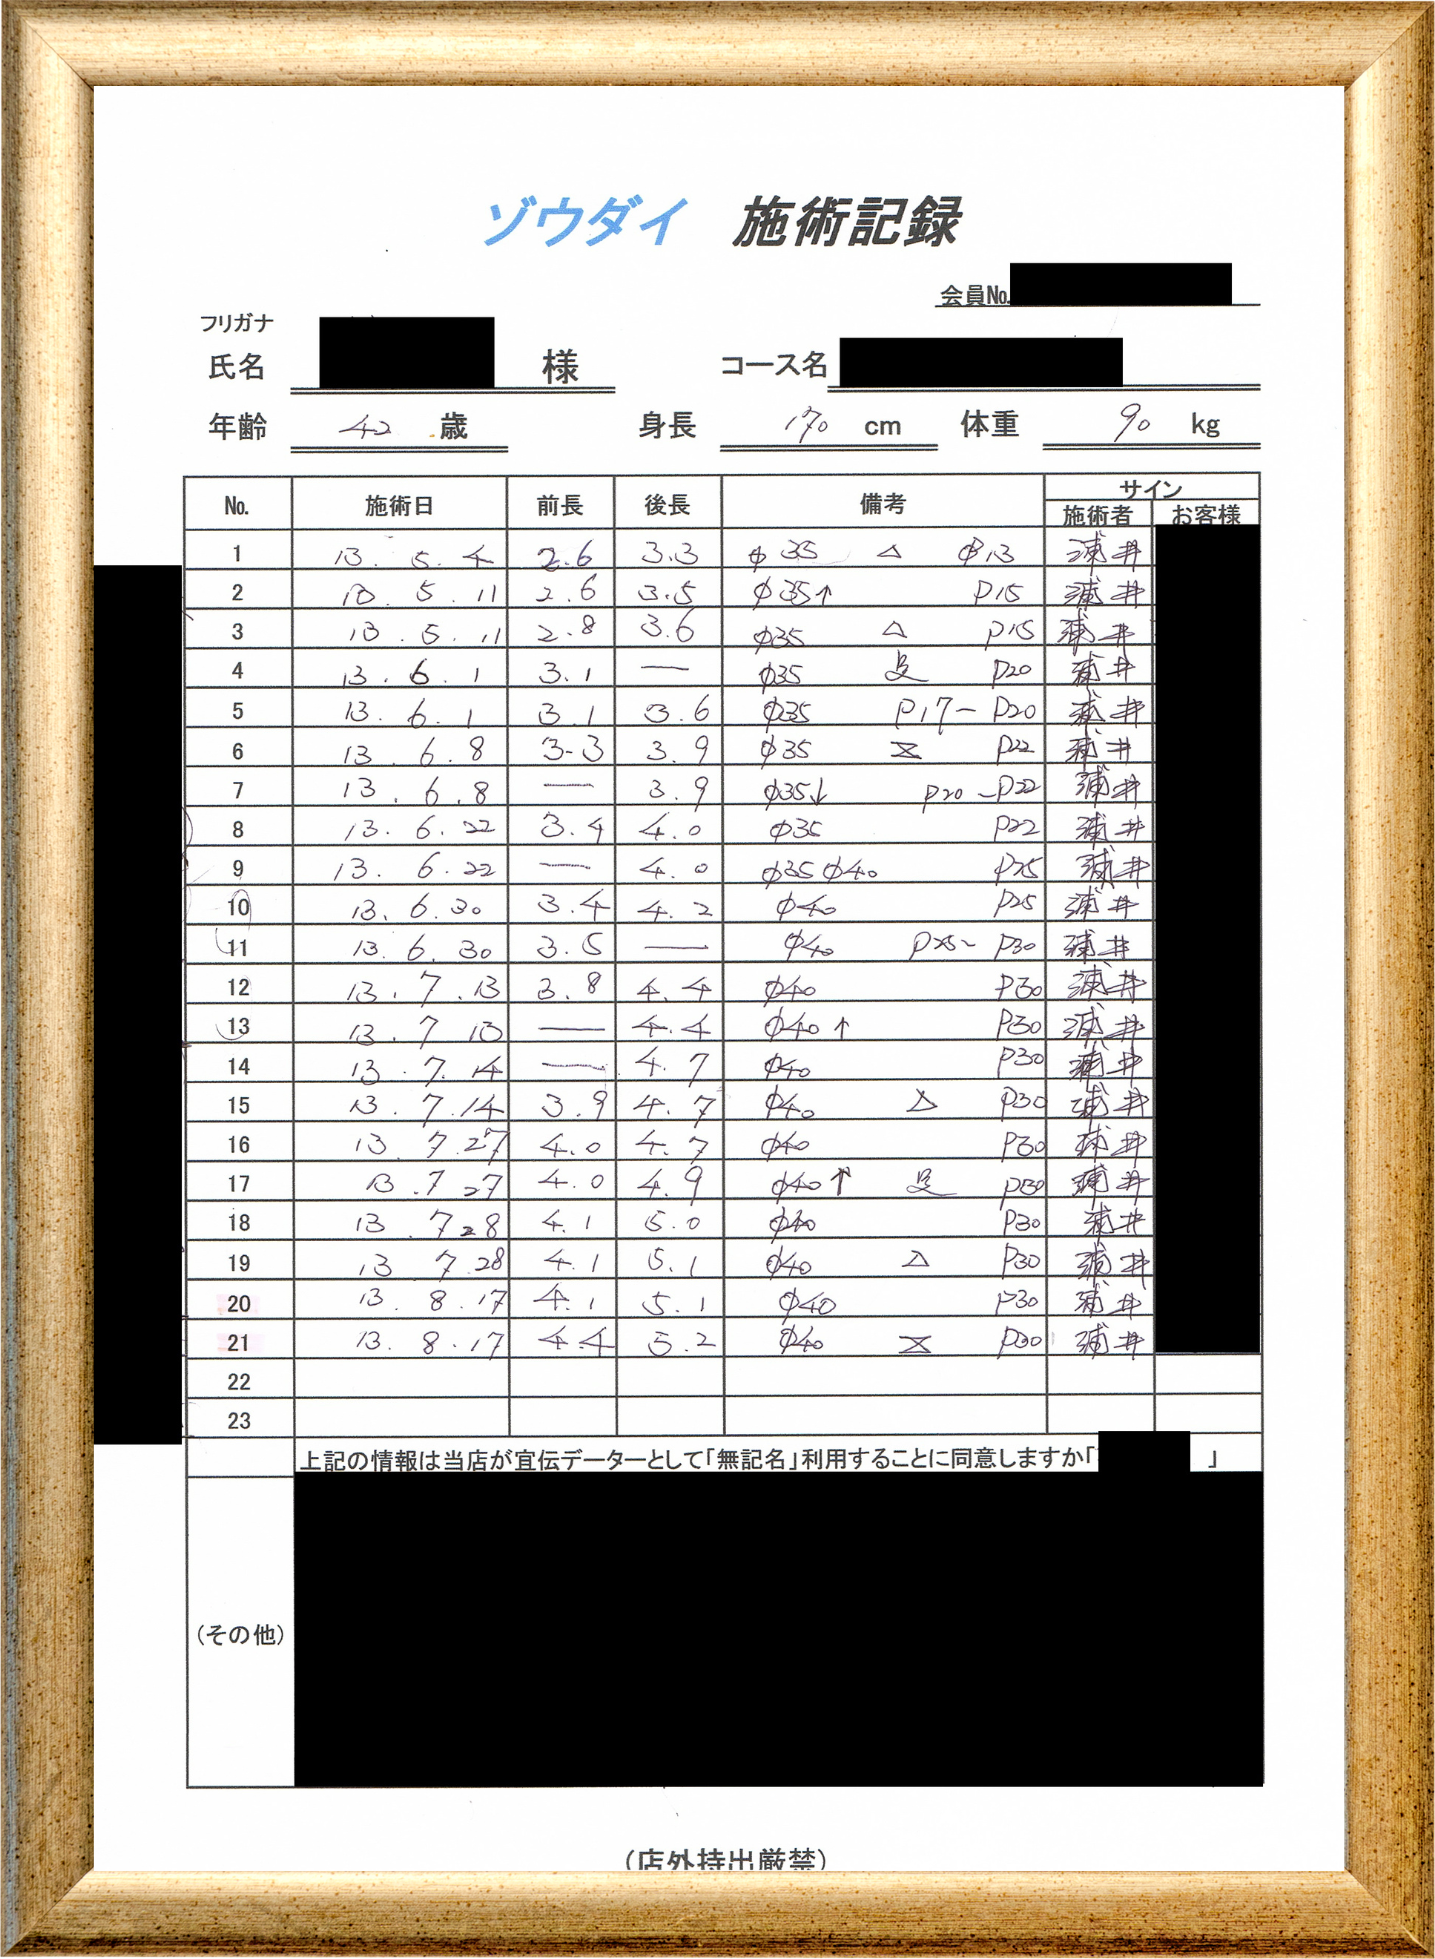 ゾウダイ 施術記録
会員No.
フリガナ
氏名 様 コース名
年齢 42 歳 身長 170 cm 体重 90 kg
No. 施術日 前長 後長 備考 サイン
施術者 お客様
1 13. 5. 4 2.6 3.3 φ35 △ P13 浦井
2 13. 5. 11 2.6 3.5 φ35↑ P15 浦井
3 13. 5. 11 2.8 3.6 φ35 △ P15 浦井
4 13. 6. 1 3.1 — φ35 P20 浦井
5 13. 6. 1 3.1 3.6 φ35 P17~P20 浦井
6 13. 6. 8 3.3 3.9 φ35 P22 浦井
7 13. 6. 8 — 3.9 φ35↓ P20~P22 浦井
8 13. 6. 22 3.4 4.0 φ35 P22 浦井
9 13. 6. 22 — 4.0 φ35 φ40 P25 浦井
10 13. 6. 30 3.4 4.2 φ40 P25 浦井
11 13. 6. 30 3.5 — φ40 P25~P30 浦井
12 13. 7. 13 3.8 4.4 φ40 P30 浦井
13 13. 7 13 — 4.4 φ40↑ P30 浦井
14 13. 7. 14 — 4.7 φ40 P30 浦井
15 13. 7. 14 3.9 4.7 φ40 △ P30 浦井
16 13 7. 27 4.0 4.7 φ40 P30 浦井
17 13 .7 27 4.0 4.9 φ40↑ P30 浦井
18 13 . 7 28 4.1 5.0 φ40 P30 浦井
19 13 7. 28 4.1 5.1 φ40 △ P30 浦井
20 13. 8. 17 4.1 5.1 φ40 P30 浦井
21 13. 8. 17 4.4 5.2 φ40 P30 浦井
22
23
上記の情報は当店が宣伝データーとして「無記名」利用することに同意しますか「 」
(その他)
(店外持出厳禁)